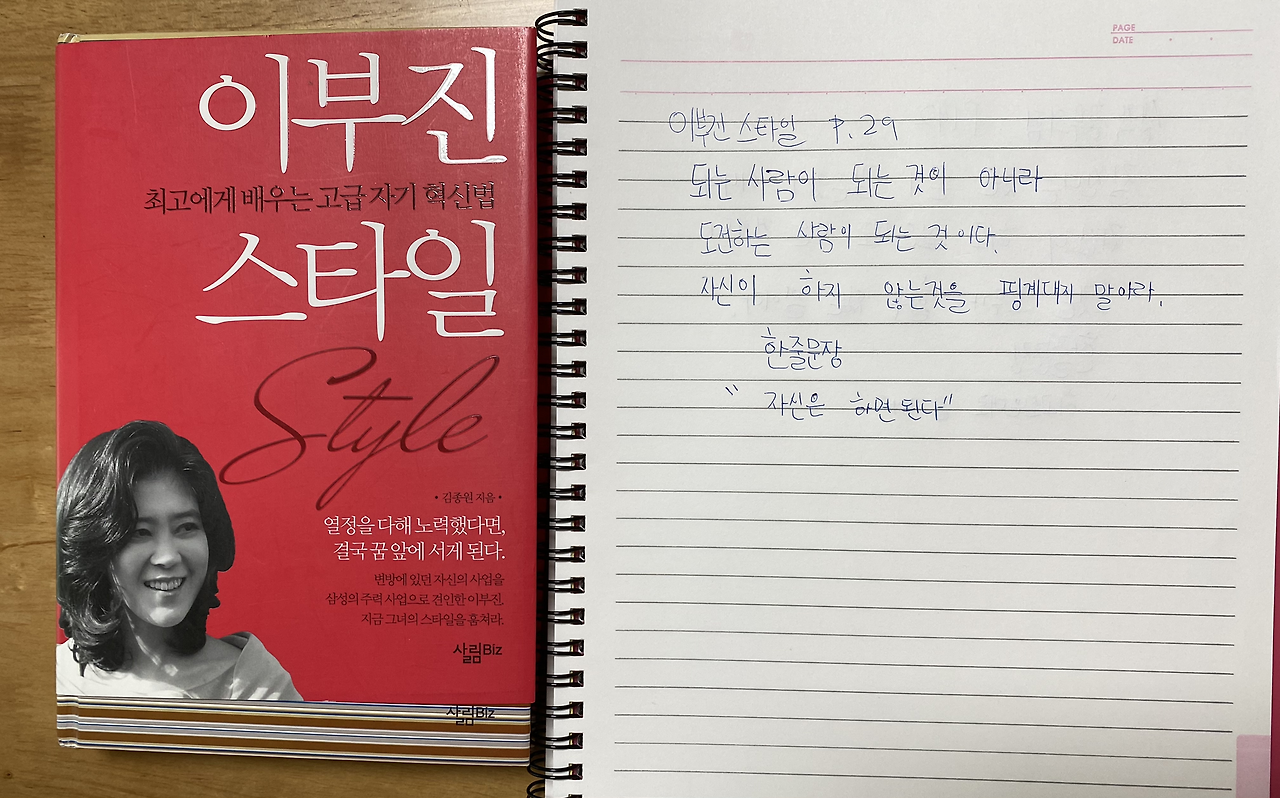 이부진
최고에게 배우는 고급 자기 혁신법
스타일
Style
• 김종원 지음 •
열정을 다해 노력했다면,
결국 꿈 앞에 서게 된다.
변방에 있던 자신의 사업을
삼성의 주력 사업으로 견인한 이부진.
지금 그녀의 스타일을 훔쳐라.
살림Biz
살림Biz
PAGE
DATE
이부진 스타일 P. 29
되는 사람이 되는 것이 아니라
도전하는 사람이 되는 것이다.
자신이 하지 않는것을 핑계대지 말아라.
한줄문장
“ 자신은 하면 된다”